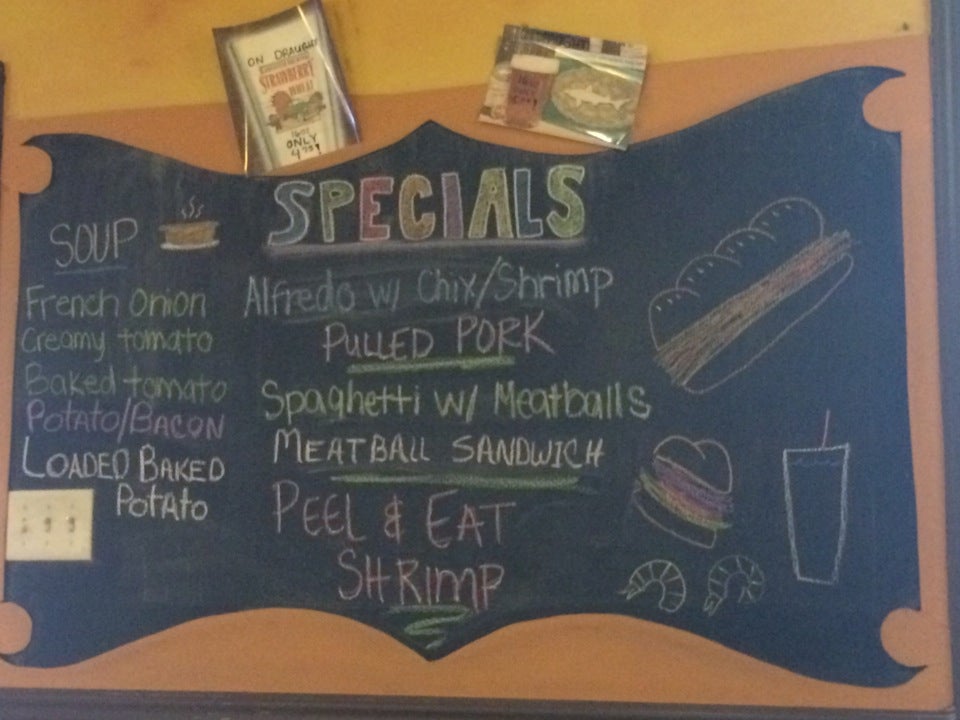 ON DRAUGHT
STRAWBERRY
WHEAT
16oz
ONLY
SPECIALS
SOUP
French Onion
Creamy tomato
Baked tomato
POTATO/BACON
LOADED BAKED
POTATO
Alfredo w/ Chix/Shrimp
PULLED PORK
Spaghetti w/ Meatballs
MEATBALL SANDWICH
PEEL & EAT
SHRIMP